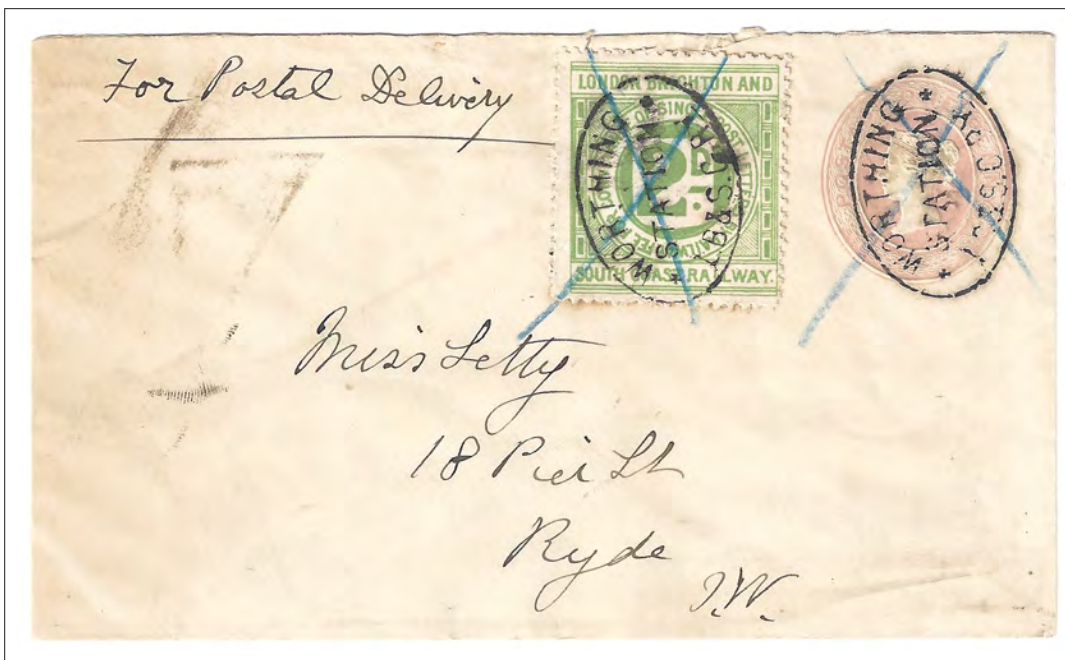 For Postal Delivery
LONDON BRIGHTON AND
2D.
SOUTH COAST RAILWAY.
WORTHING
STATION
L.B.&S.C.RY
WORTHING
STATION
L.B.&S.C.RY
Miss Letty
18 Pier St
Ryde
I.W.